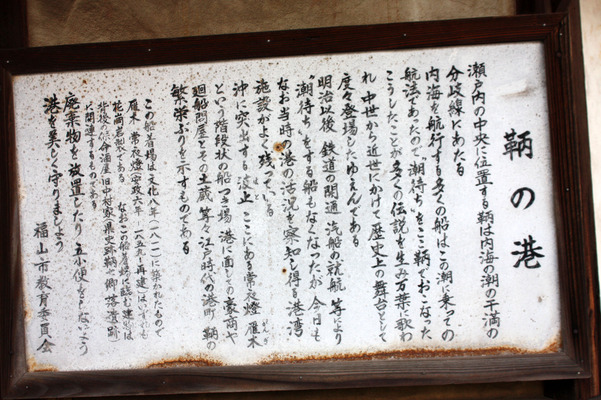 鞆の港
瀬戸内の中央に位置する鞆は内海の潮の干満の
分岐線にあたる
内海を航行する多くの船はこの潮に乗っての
航法であったので〝潮待ち〟をここ鞆でおこなった
こうしたことが多くの伝説を生み万葉に歌わ
れ 中世から近世にかけて歴史上の舞台として
度々登場したゆえんである
明治以後 鉄道の開通 汽船の就航 等により
〝潮待ち〟をする船もなくなったが 今日も
なお当時の港の活況を察知し得る港湾
施設がよく残っている
沖に突出する波止 ここにある常夜燈 雁木
という階段状の船つき場 港に面しての豪商や
廻船問屋とその土蔵 等々江戸時代の港町 鞆の
繁栄ぶりを示すものである
この船着場は文化八年(一八一一)に築かれたもので
雁木 常夜燈(安政六年 一八五九)再建はいずれも
花崗岩製である なおこの船着場に臨む建物は
背後の保命酒屋 旧中村家(県史跡鞆七卿落遺跡)
に関連するものである
廃棄物を放置したり 五小便をしないよう
港を美しく守りましょう
福山市教育委員会